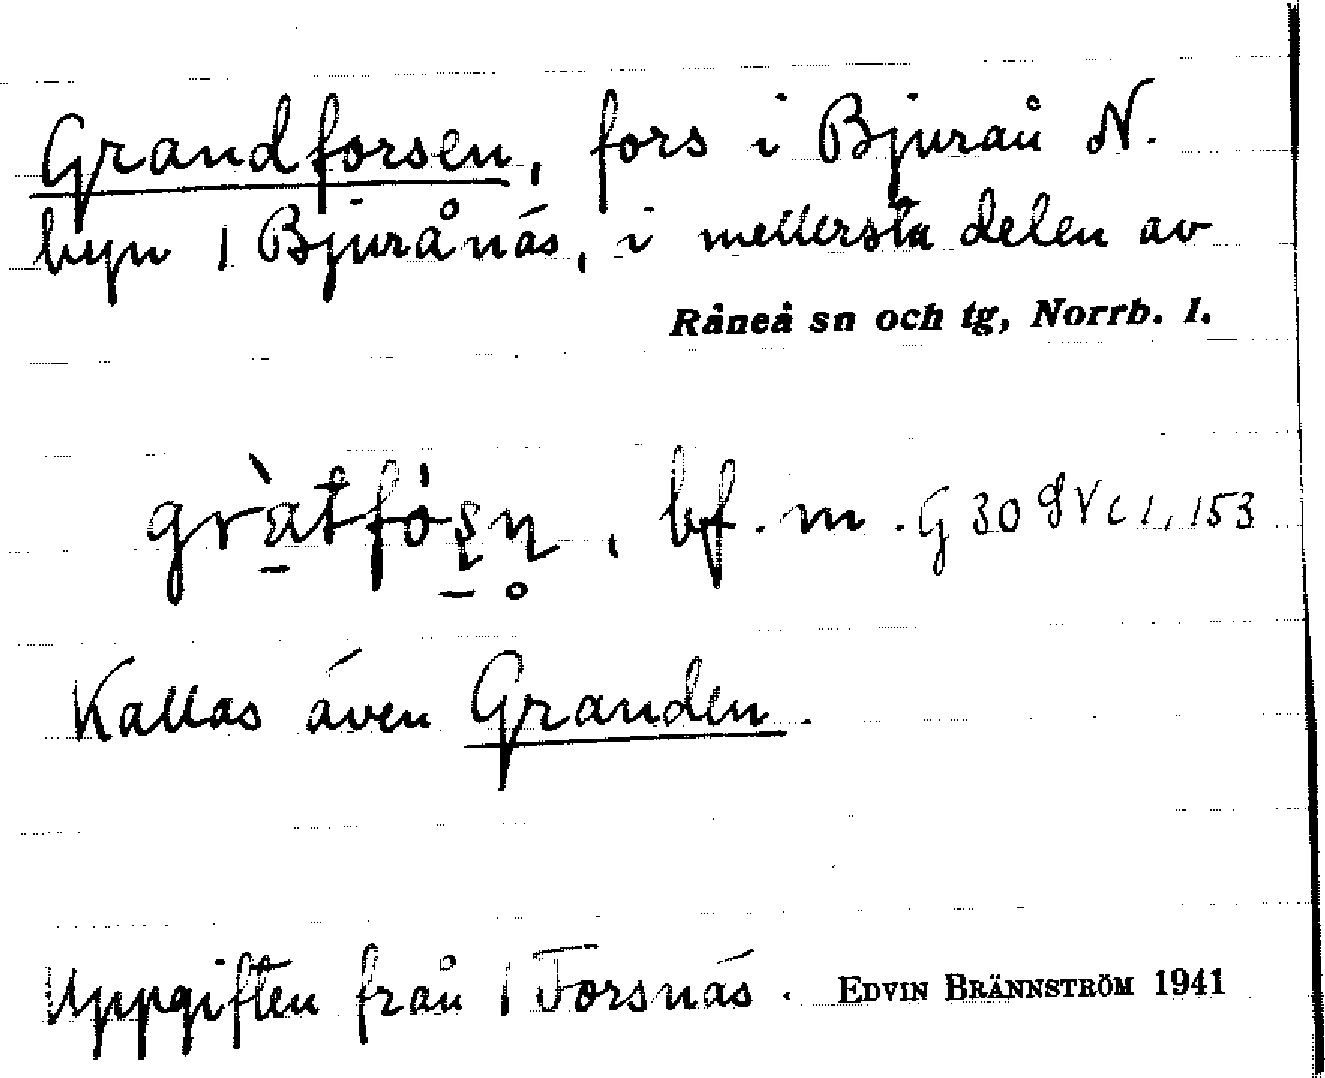 Grandforsen, fors i Bjuraü N.
byn 1 Bjurånäs, i mellersta delen av
Råneå sn och tg, Norrb. l.
bf. m. G 30
Kallas även Granden.
Uppgiften från 1 Forsnäs. EDVIN BRÄNNSTRÖM 1941